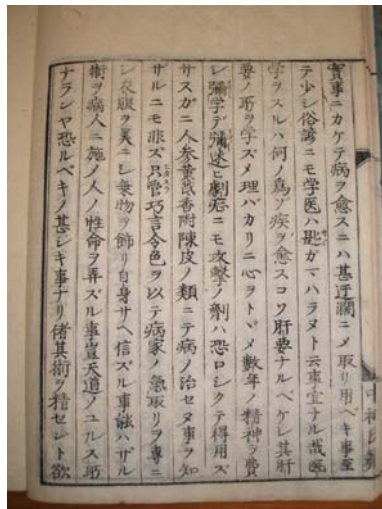 實事ニカケテ病ヲ愈スニハ甚迂濶ニメ取リ用ベキ事至
テ少シ俗諺ニモ学医ハ匙ガマハラヌト云事宜ナル哉医
学ヲスルハ何ノ為ゾ疾ヲ愈スコソ肝要ナルベケレ其肝
要ノ所ヲ学ズメ理バカリニ心ヲトヾメ数年ノ精神ヲ費
シ彌学デ彌迷ヒ劇疾ニモ攻撃ノ劑ハ恐ロシクテ得用ズ
サスガニ人参黄芪香附陳皮ノ類ニテ病ノ治セヌ事ヲ知
ザルニモ非ズ只管巧言令色ヲ以テ病家ノ急取リヲ專ニ
シ衣服ヲ美ニシ乗物ヲ飾リ自身サヘ信ズル事能ハザル
術ヲ病人ニ施ノ人ノ性命ヲ弄ズル事豈天道ノユルス所
ナランヤ恐ルベキノ甚シキ事ナリ偖其術ヲ精セント欲